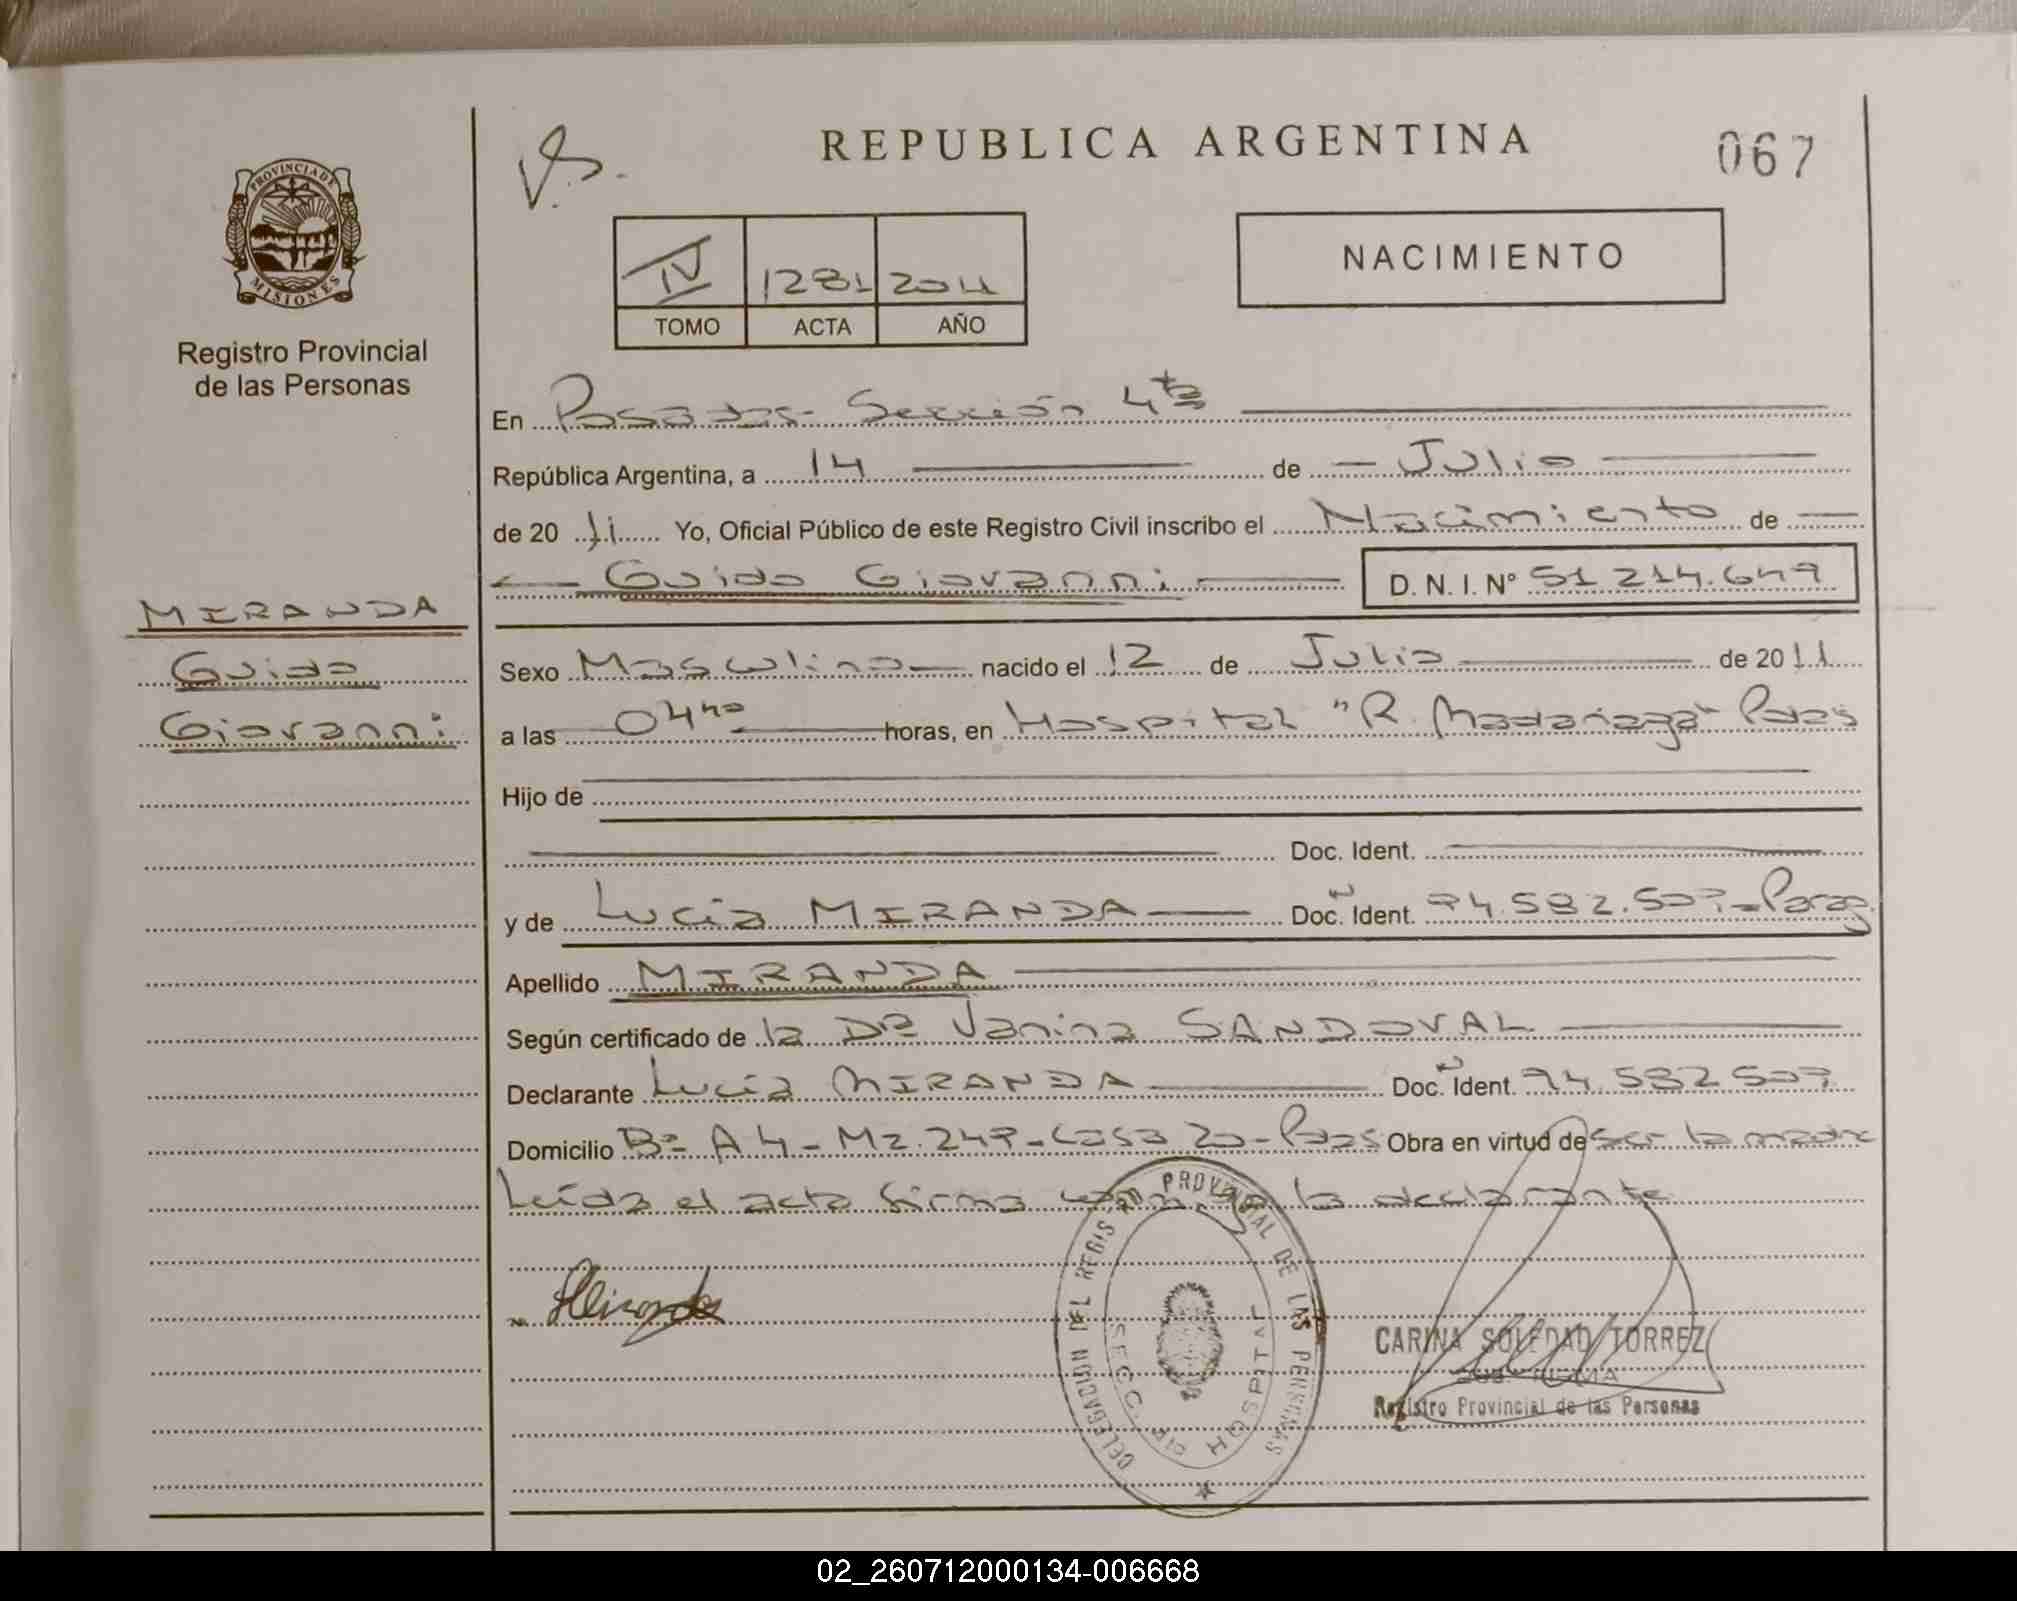 REPUBLICA ARGENTINA
067
PROVINCIA DE MISIONES
Registro Provincial
de las Personas
IV 1281 2011
TOMO ACTA AÑO
NACIMIENTO
En Posadas- Sección 4ta
República Argentina, a 14 de - Julio
de 2011 Yo, Oficial Público de este Registro Civil inscribo el Nacimiento de
Guido Giovanni D. N. I. Nº 51 214.649
MIRANDA
Guido
Giovanni
Sexo Masculino nacido el 12 de Julio de 2011
a las 04 horas, en Hospital "R. Madariaga" Pdas
Hijo de
Doc. Ident.
y de Lucía MIRANDA Doc. Ident. 94.582.507-Parag
Apellido MIRANDA
Según certificado de la Dra Vanina SANDOVAL
Declarante Lucía MIRANDA Doc. Ident. 94.582 507
Domicilio Bº A 4 - Mz. 249 - Casa 20 - Pdas Obra en virtud de ser la madre
Leída el acta firma la declarante
DELEGACION DEL REGISTRO PROVINCIAL DE LAS PERSONAS
SECC. HOSPITAL
CARINA SOLEDAD TORREZ
FIRMA
Registro Provincial de las Personas
02_260712000134-006668